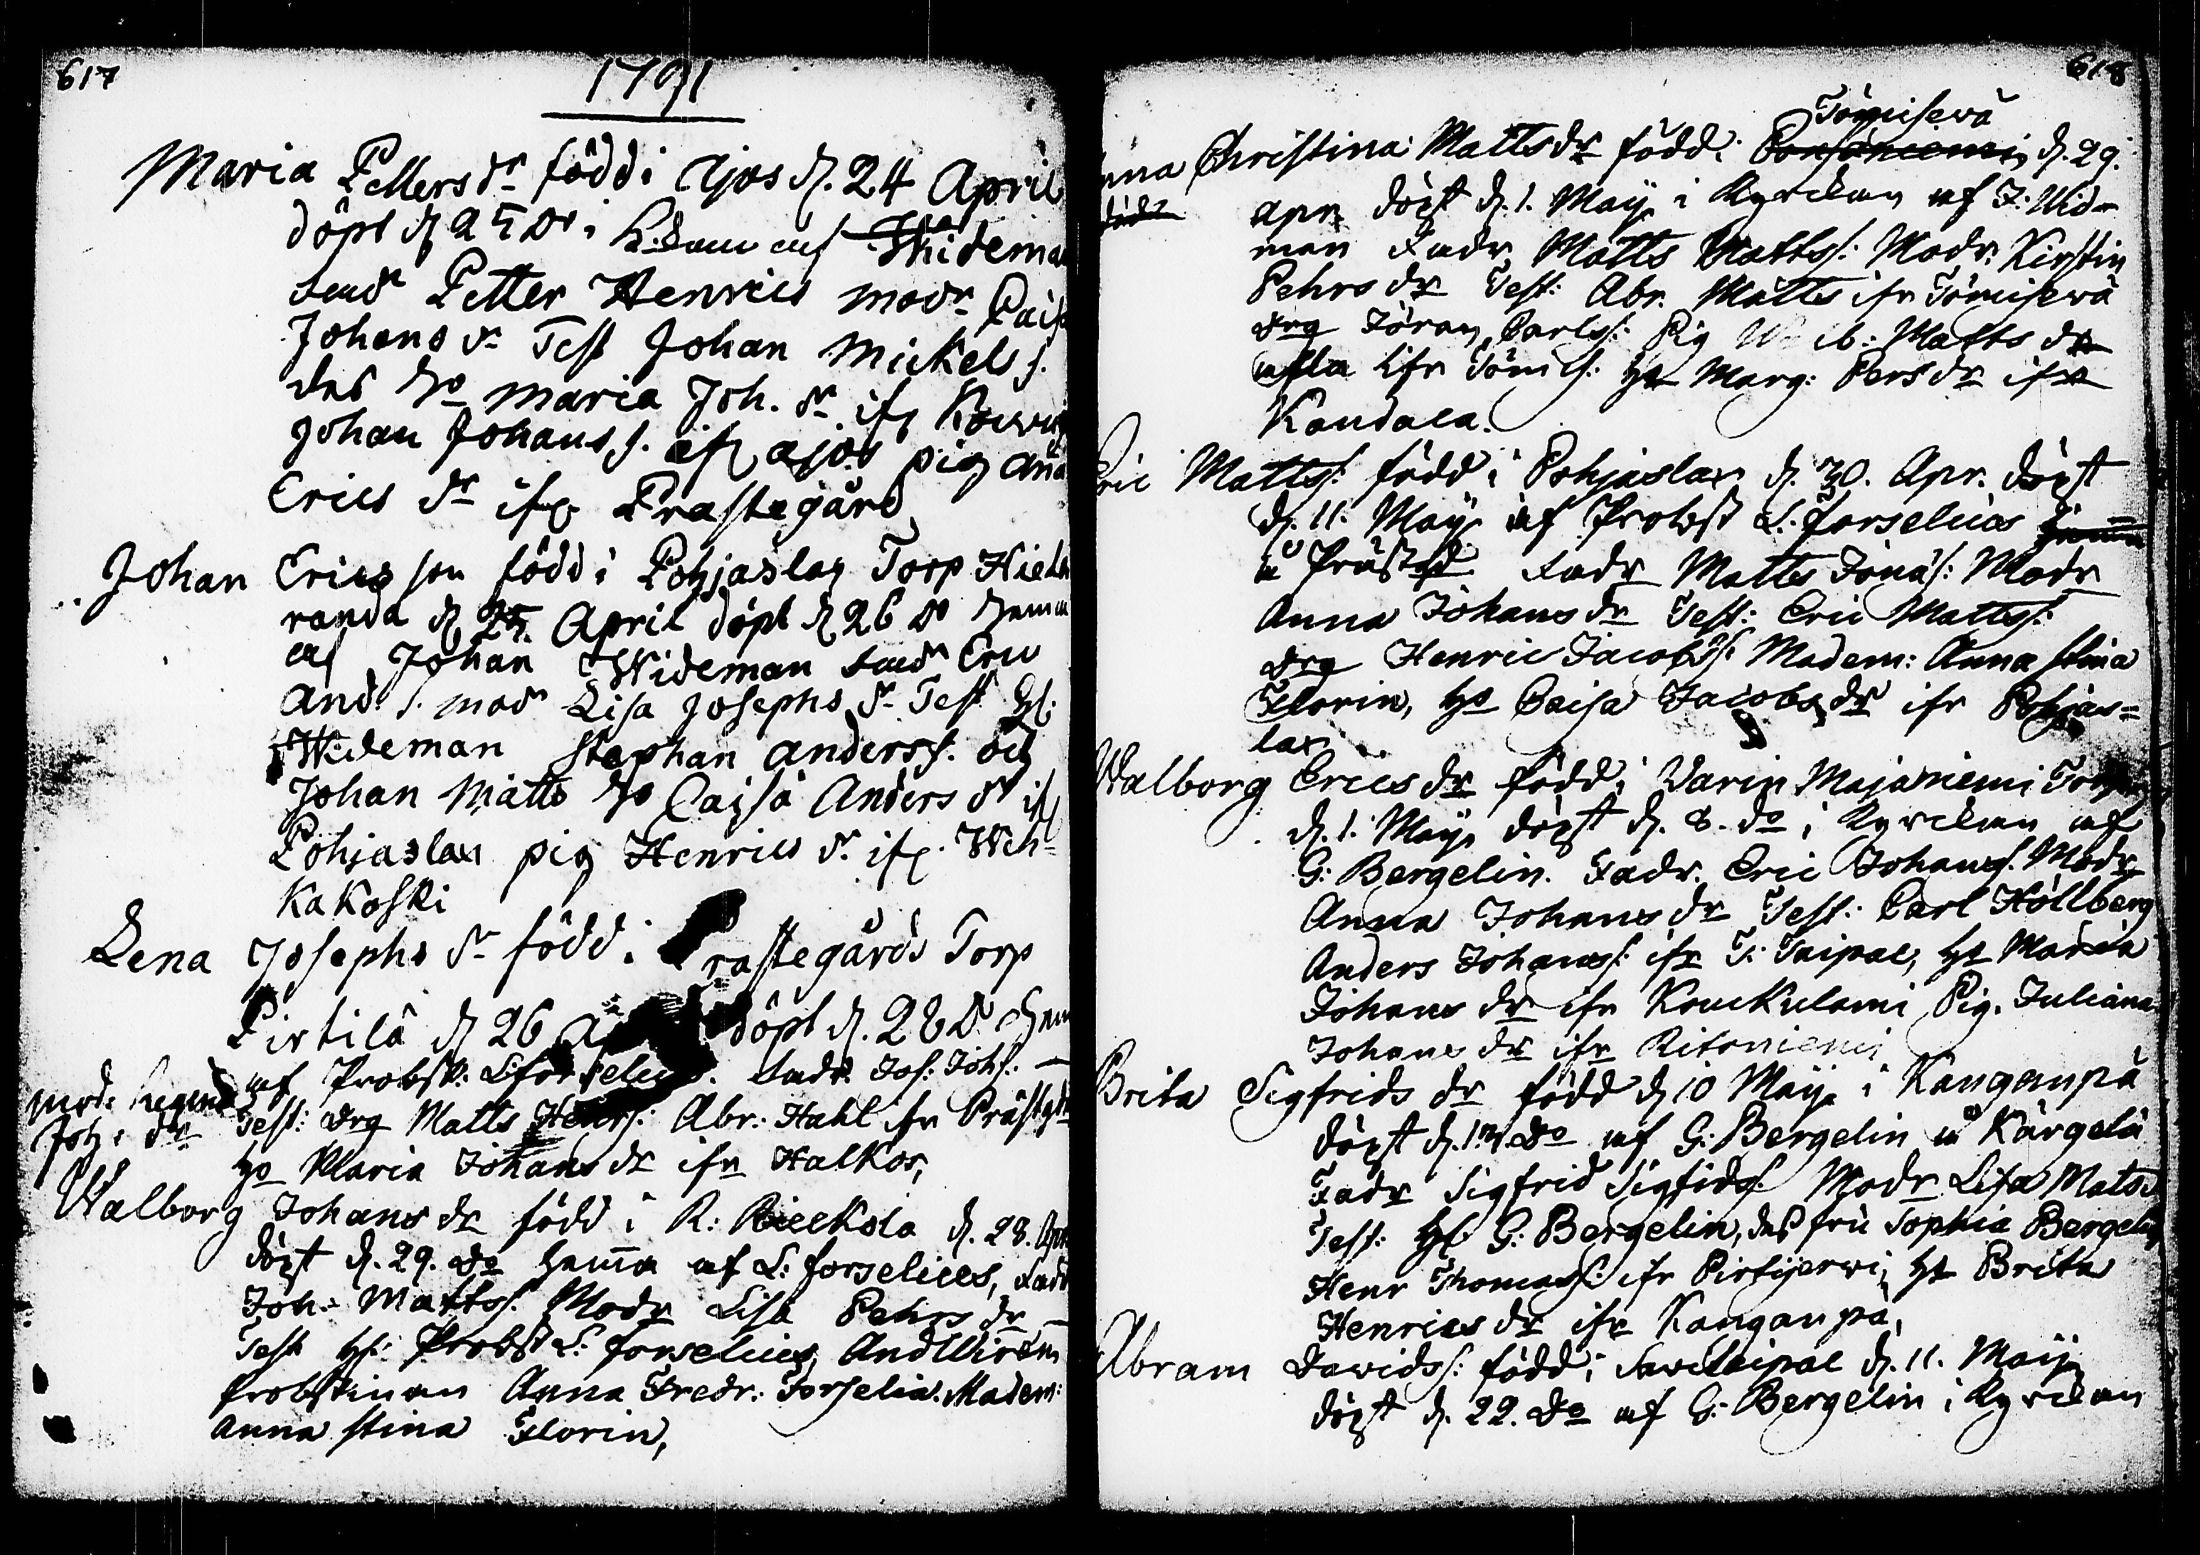 617
1791
Maria Pettersdr född i Ajos d. 24 April
döpt d 25 do i af Wideman
Fadr Petter Henrics modr Caisa
Johansdr Test Johan Mickels s.
das Ho Maria Joh. dr ifr
Johan Johanss. ifr ajos pig Aña
Erics dr ifr Prastegård
Johan Ericsson född i Pohjaslax Torp Hieta
randa d 25 April döpt d 26 do hemma
af Johan Wideman Fadr Eric
And. s. modr Lisa Josephs dr Test H:
Wideman Stephan anderss. och
Johan Matts Ho Cajsa Anders dr ifr
Pohjaslax pig Henrics dr ifr. Weh=
kakoski
Lena Josephs dr född i Prastegårds Torp
Pirtilä d 26 döpt d. 28 do hem
af Probst: L: forselius. Fadr Jos: Johs:
modr
Joh: dr
Test: Drg Matts Henrs: Abr: Hahl ifr Prästgd
Ho Maria Johans dr ifr Halkos,
Walborg Johans dr född i R: d. 28. Apr
döpt d. 29. do hem̅a af L: forselius, Fadr
Joh: Matts s: Modr Lisa Pehrs dr
Test H: Probst L: forselius, And Wirdm
Probstinnan Anna Fredr: Forselia. Madem:
Anna Stina Florin,
618
Tömisewä
Anna Christina Matts dr född i d. 29.
apr. döpt d. 1. Maij i Kyrckan af J: Wid=
man Fadr Matts Mattss: Modr: Kirstin
Pehrs dr Test: Abr. Matts ifr Tömisewä
Drg Jöran Carlss: Pig Walb: Matts dr
alla ifr Tömis: Ho Marg: Persdr ifr
Kandala.
Eric Mattss: född i Pohjaslax d. 30. Apr. döpt
d. 11. Maij af Probst L. forselius
i Prästgd Fadr Matts Jonas: Modr
Anna Johans dr Test: Eric Mattss:
Drg Henric Jacobss: Madem: Anna Stina
Florin, Ho Caisa Jacobs dr ifr Pohjas=
lax
Walborg Erics dr född i Varin Majaniemi Torp
d. 1. Maij döpt d. 8. do i Kyrckan af
G: Bergelin. Fadr. Eric Johanss. Modr
Anna Johans dr Test: Carl Höllberg
Anders Johanss: ifr T: Taipal, Ho Maria
Johans dr ifr Kouckulami Pig. Juliana
Johans dr ifr Ritoniemi
Brita Sigfrids dr född d 10 Maij i Kanganpä
döpt d. 13 do af G: Bergelin i Kärgelä
Fadr Sigfrid Sigfids: Modr Lisa Matsd
Test: H: G: Bergelin, das fru Sophia Bergelin
Henr Thomass: ifr Pirtijerwi, Ho Brita
Henrics dr ifr Kanganpä,
Abram Davids: född i d. 11. Maij
döpt d. 22. do af G: Bergelin i Kyrckan